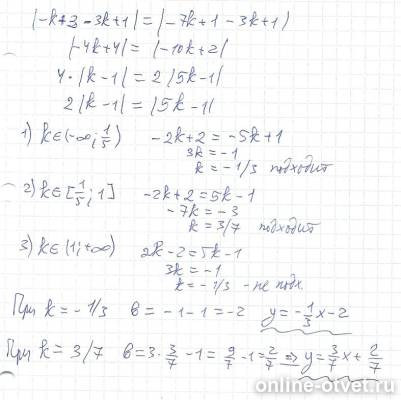 |-k+3-3k+1|=|-7k+1-3k+1|
|-4k+4|=|-10k+2|
4·|k-1|=2|5k-1|
2|k-1|=|5k-1|
1) k∈(-∞;1/5) -2k+2=-5k+1
3k=-1
k=-1/3 подходит
2) k∈[1/5;1] -2k+2=5k-1
-7k=-3
k=3/7 подходит
3) k∈(1;+∞) 2k-2=5k-1
3k=-1
k=-1/3 - не подх.
При k=-1/3 в=-1-1=-2 y=-1/3x-2
При k=3/7 в=3·3/7-1=9/7-1=2/7 ⇒ y=3/7x+2/7
online-otvet.ru